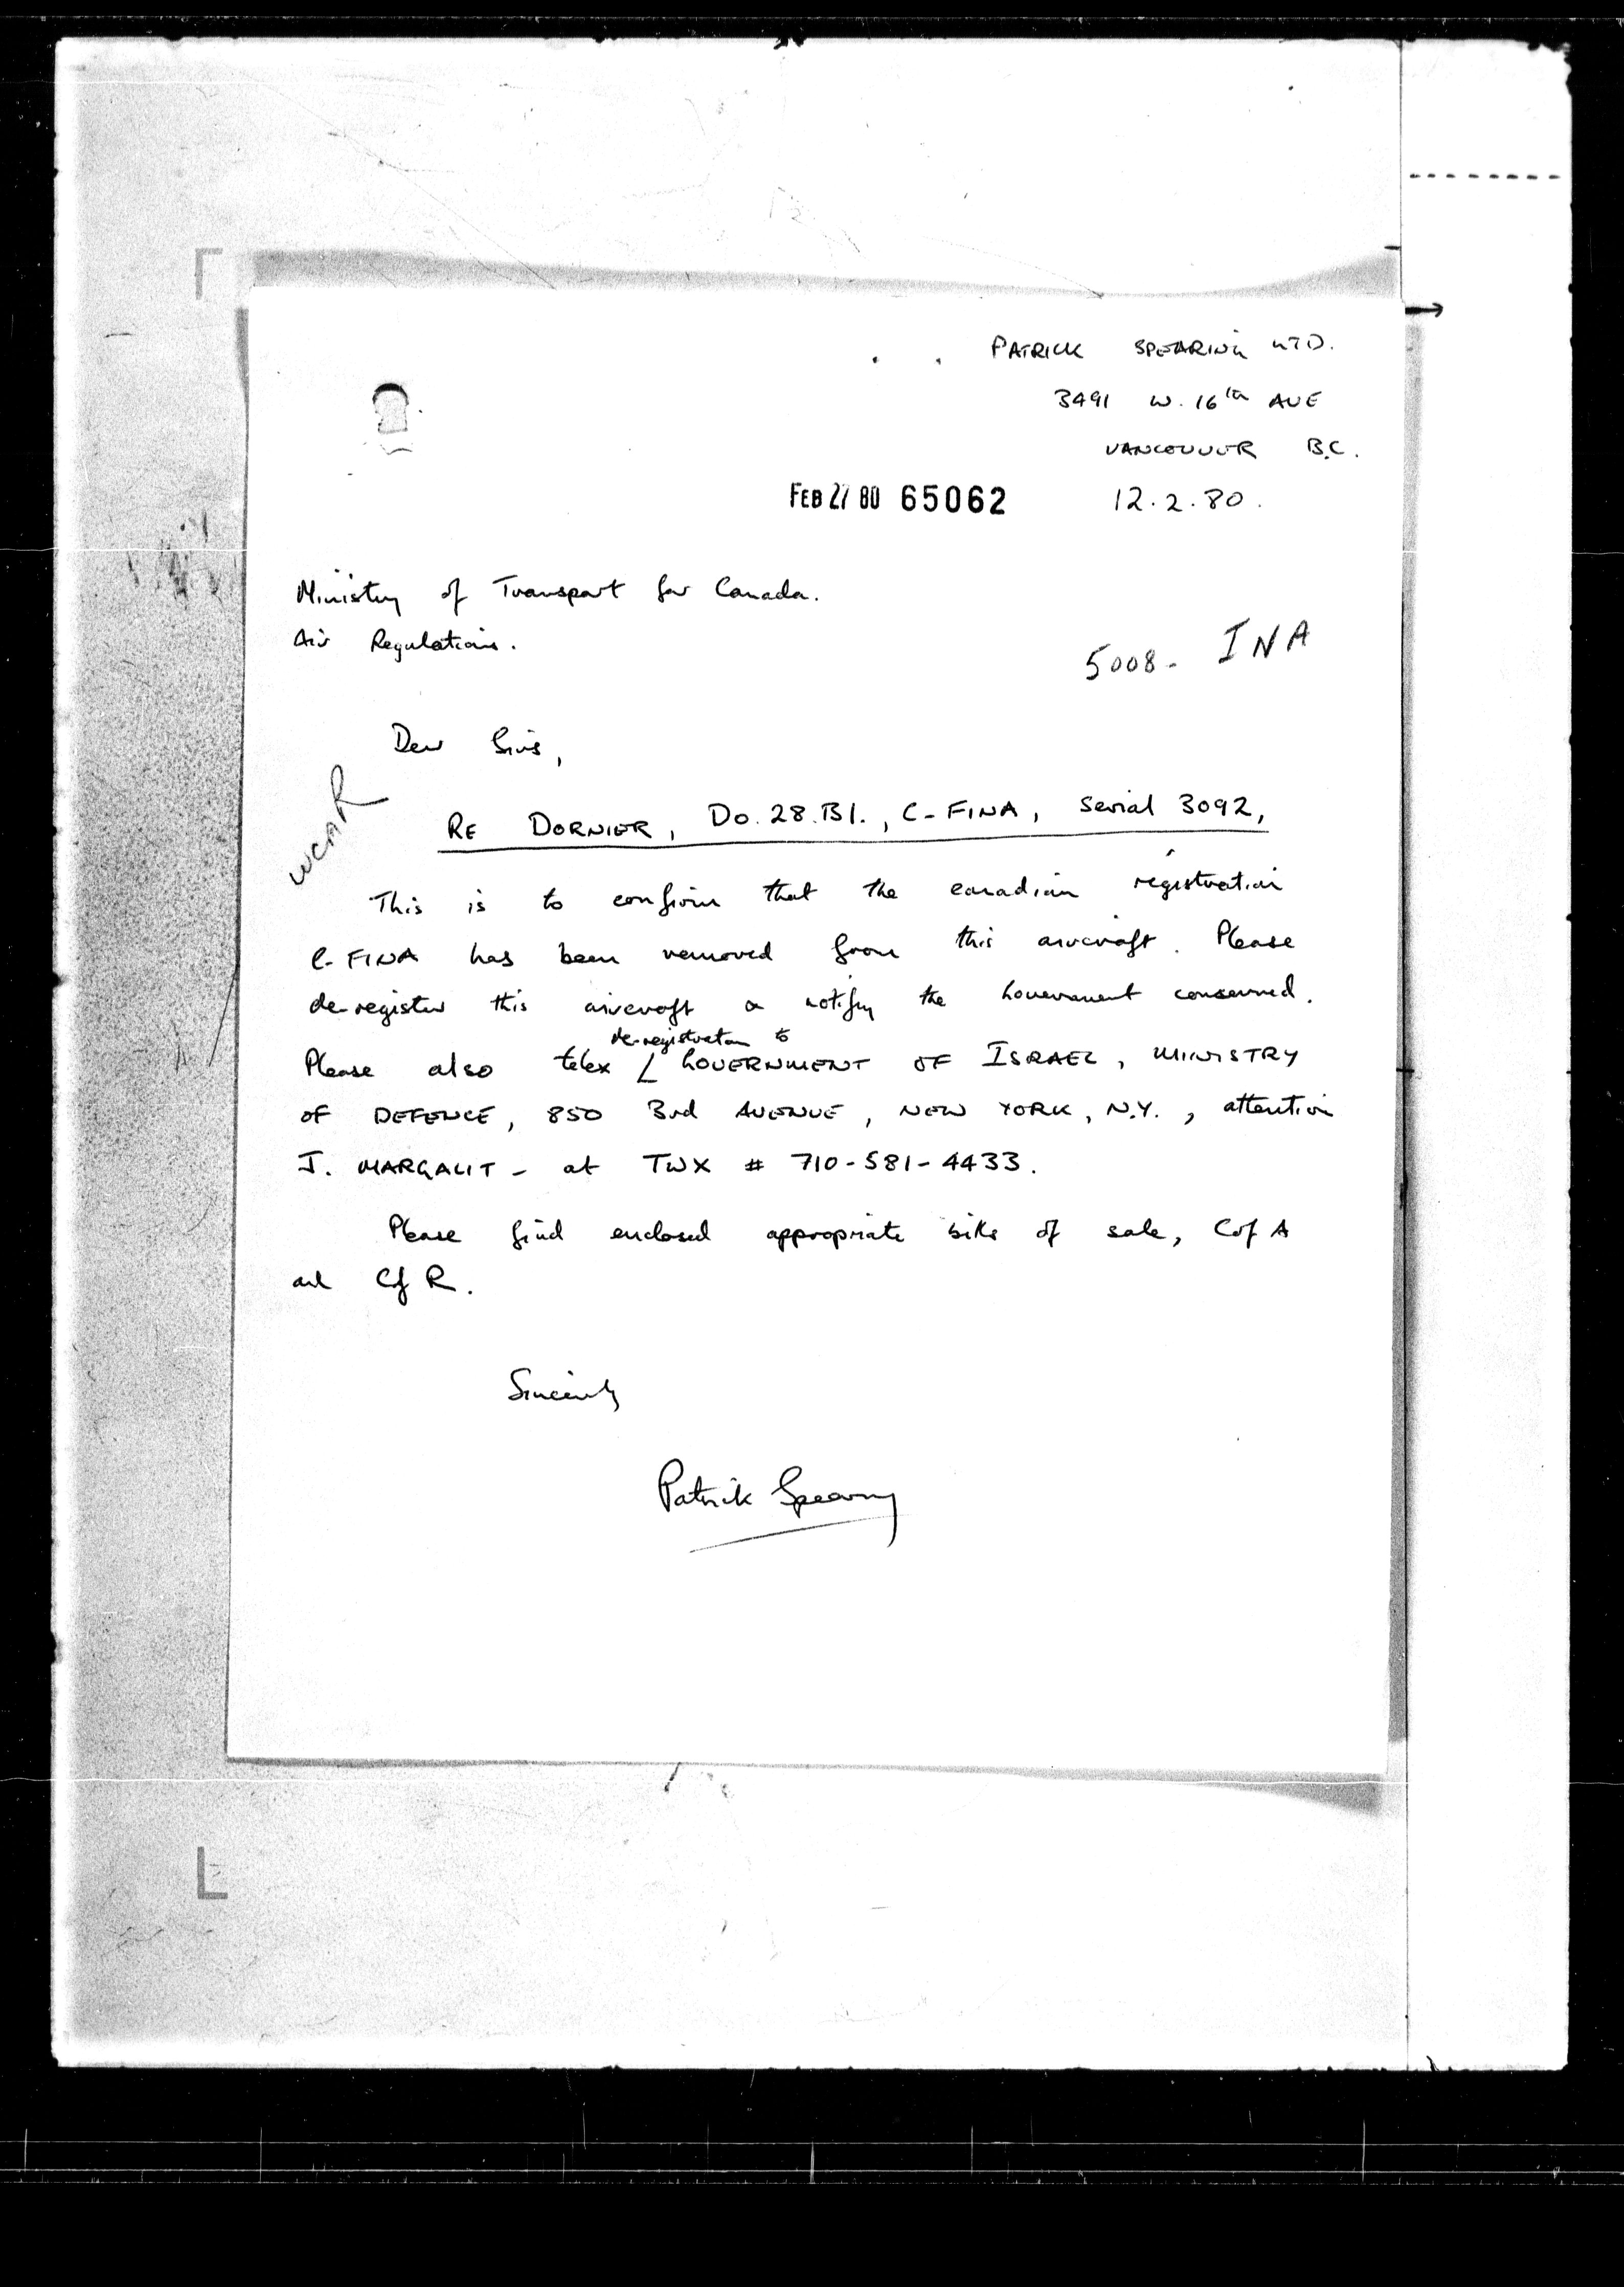 PATRICK SPEARING LTD.
3491 W. 16th AVE
VANCOUVER B.C.
FEB 27 80 65062 12.2.80.
Ministry of Transport for Canada.
Air Regulations.
5008- INA
Dear Sirs,
WCAR
RE DORNIER, Do.28.B1., C-FINA, Serial 3092,
This is to confirm that the canadian registration
C-FINA has been removed from this aircraft. Please
de-register this aircraft & notify the Government conserned.
de-registration to
Please also telex GOVERNMENT OF ISRAEL, MINISTRY
OF DEFENCE, 850 3rd AVENUE, NEW YORK, N.Y., attention
J. MARGALIT - at TWX # 710-581-4433.
Please find enclosed appropriate bills of sale, C of A
and C of R.
Sincerely
Patrick Spearing